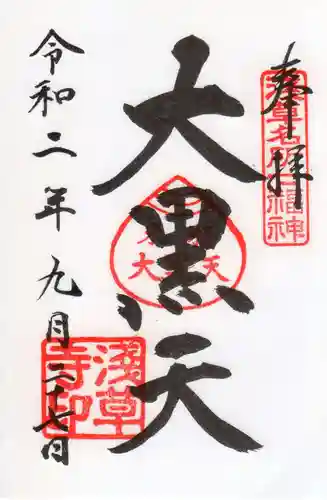 奉拝
浅草名所七福神
大黒天
大黒天
令和二年九月二十七日
浅草寺印